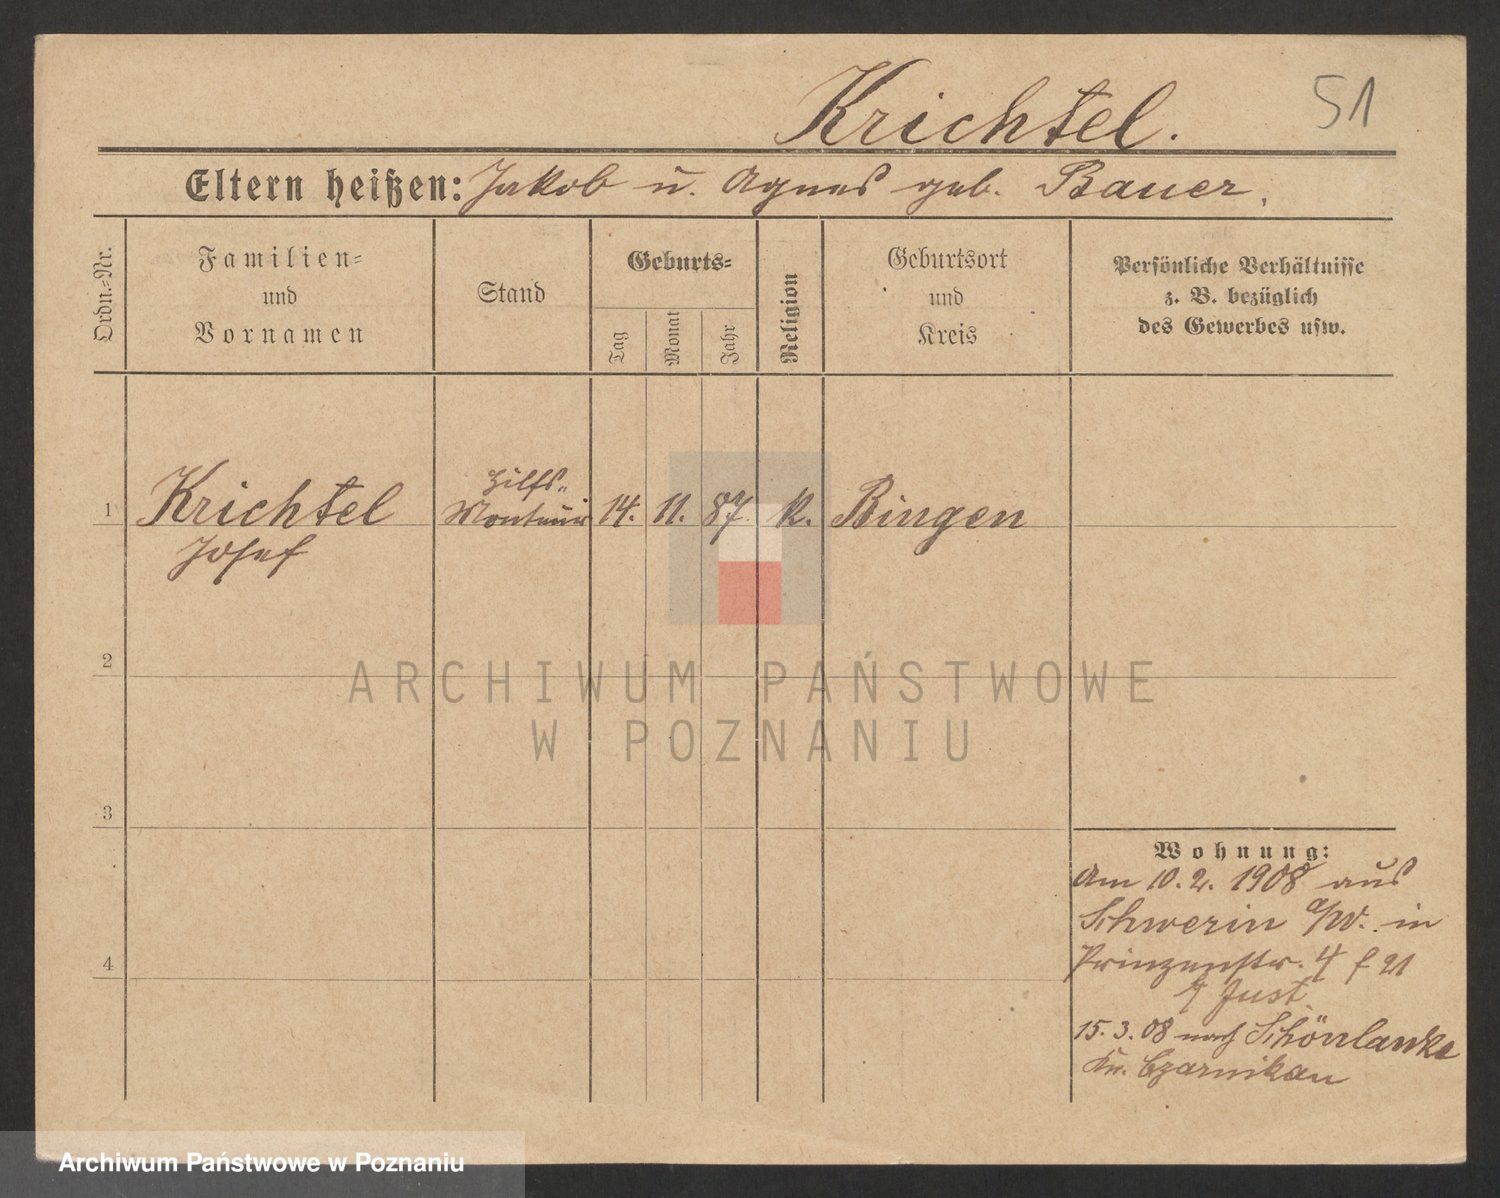 Krichtel.
51
Eltern heißen: Jakob u. Agnes geb. Bauer.
Ordn.-Nr.
Familien-
und
Vornamen
Stand
Geburts-
Tag
Monat
Jahr
Religion
Geburtsort
und
Kreis
Persönliche Verhältnisse
z. B. bezüglich
des Gewerbes usw.
1
Krichtel
Josef
Hilfs-
Monteur
14.
11.
87.
k.
Bingen
2
ARCHIWUM PAŃSTWOWE
W POZNANIU
3
Wohnung:
Am 10.2. 1908 aus
Schwerin a/W. in
Prinzenstr. 4
Just
15.3.08 nach Schönlanke
Kr. Czarnikau
4
Archiwum Państwowe w Poznaniu